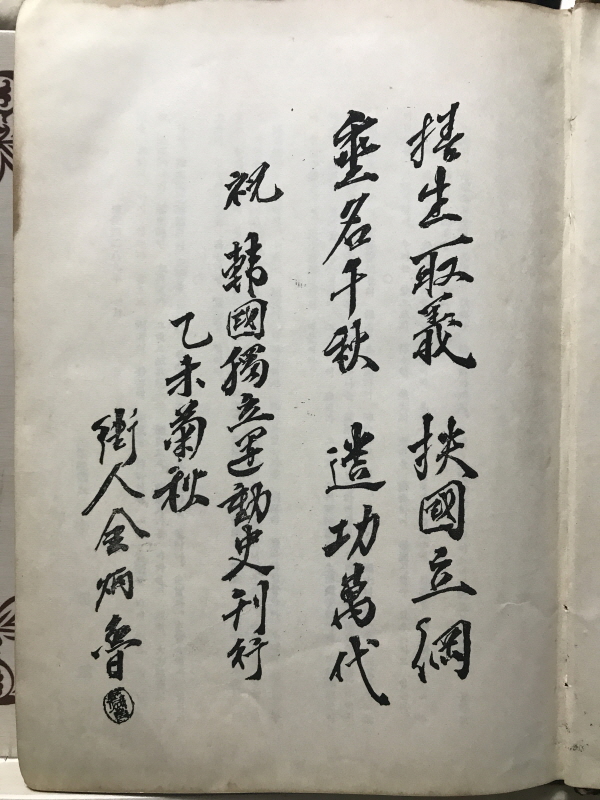 捨生取義 扶國立綱
垂名千秋 遺功萬代
祝 韓國獨立運動史刊行
乙未菊秋
街人金炳魯